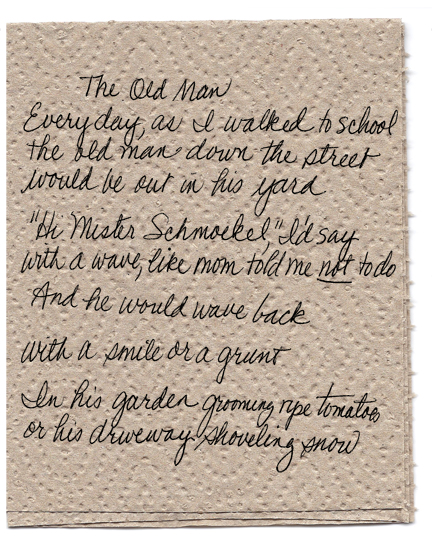 The Old Man
Every day, as I walked to school
the old man down the street
would be out in his yard
"Hi Mister Schmoekel," I'd say
with a wave, like mom told me not to do
And he would wave back
with a smile or a grunt
In his garden grooming ripe tomatoes
or his driveway shoveling snow